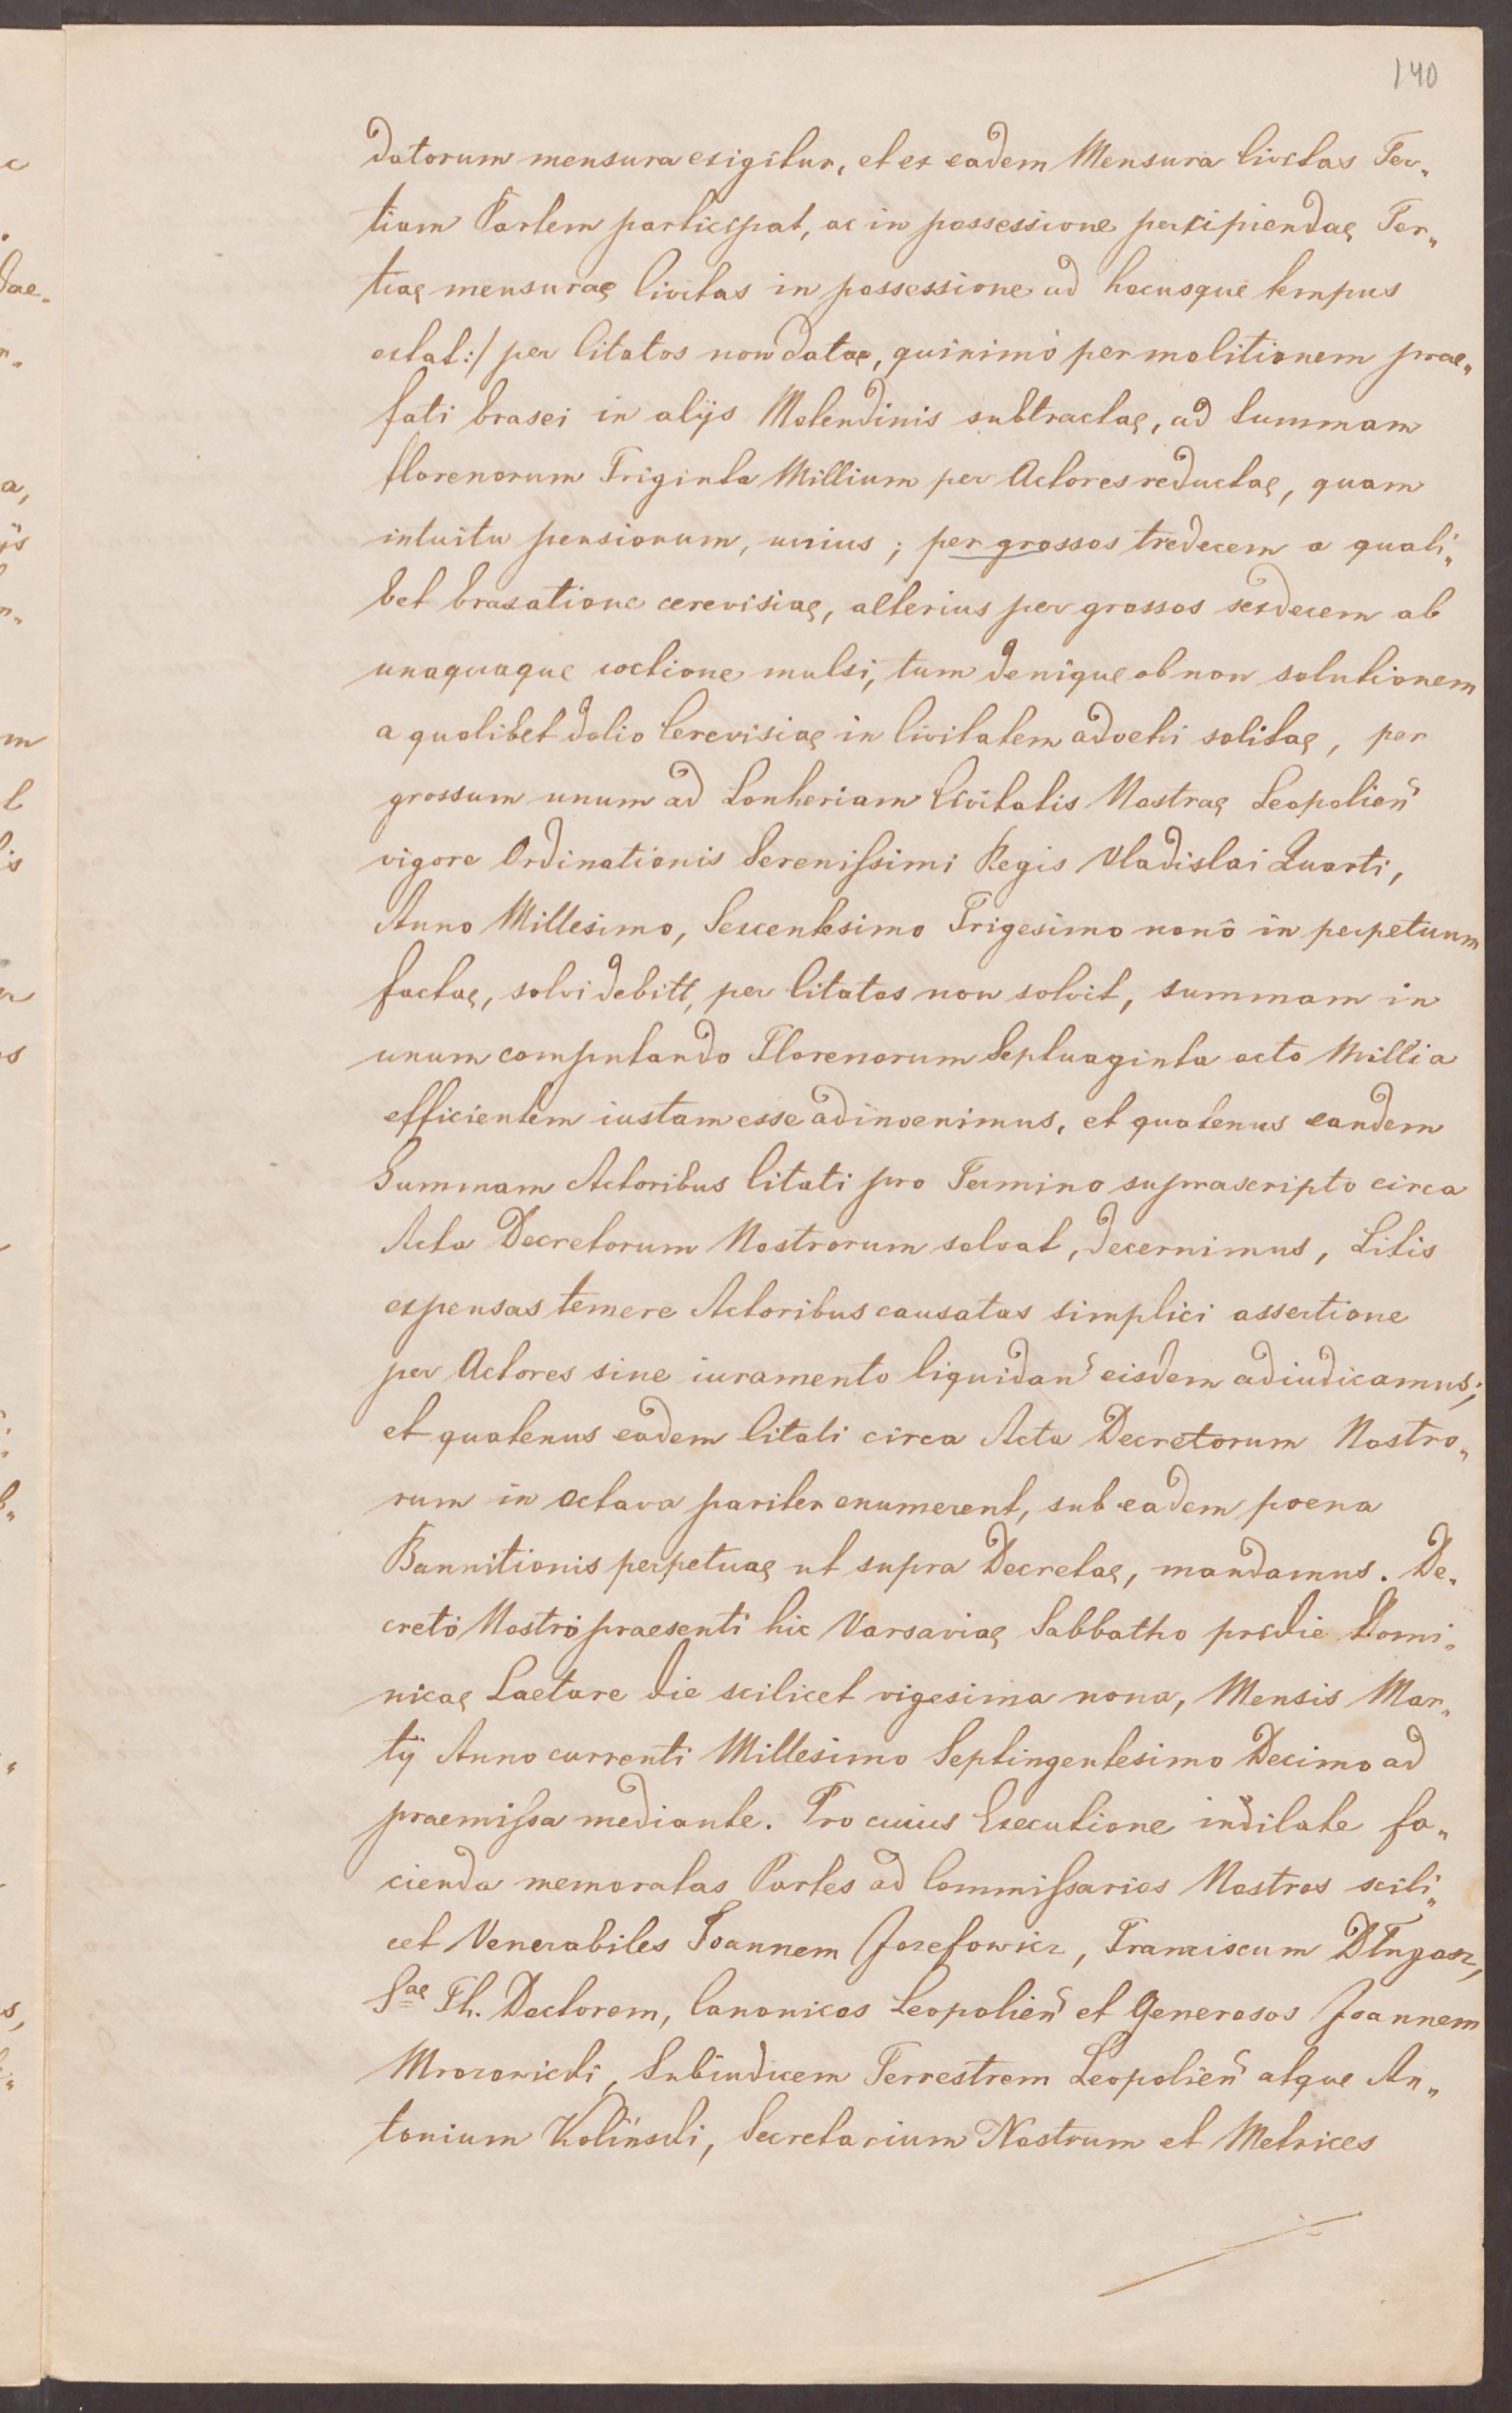 140
datorum mensura exigitur, et ex eadem Mensura Civitas Ter„
tiam Partem participat, ac in possessione percipiendae Ter„
tiae mensurae Civitas in possessione ad hocusque tempus
extat:/ per Citatos non datae, quinimò per molitionem prae„
fati brasei in alijs Molendinis subtractae, ad summam
florenorum Triginta Millium per Actores reductae, quam
intuitu pensionum, unius ; per grossos tredecem a quali„
bet braxatione cerevisiae, alterius per grossos sexdecem ab
unaquaque coctione mulsi, tum denique ob non solutionem
a quolibet dolio Cerevisiae in Civitatem advehi solitae, per
grossum unum ad Lonheriam Civitatis Nostrae Leopolien̄
vigore Ordinationis Serenissimi Regis Vladislai Quarti,
Anno Millesimo, Sexcentesimo Trigesimo nonô in perpetuum
factae, solvi debitt, per Citatos non solvit, summam in
unum computando Florenorum Septuaginta octo Millia
efficientem iustam esse adinvenimus, et quatenus eandem
Summam Actoribus Citati pro Termino suprascripto circa
Acta Decretorum Nostrorum solvat, decernimus, Litis
expensas temere Actoribus causatas simplici assertione
per Actores sine iuramento liquidan̄ eisdem adiudicamus;
et quatenus eadem Citati circa Acta Decretorum Nostro„
rum in octava pariter enumerent, sub eadem poena
Bannitionis perpetuae ut supra Decretae, mandamus. De„
cretò Nostrò praesenti hic Varsaviae Sabbatho pridie Domi„
nicae Laetare die scilicet vigesima nona, Mensis Mar„
tÿ Anno currenti Millesimo Septingentesimo Decimo ad
praemissa mediante. Pro cuius Executione indilate fa„
cienda memoratas Partes ad Commissarios Nostros scili„
cet Venerabiles Joannem Jozefowicz, Franciscum Długosz,
Sae Th. Doctorem, Canonicos Leopolien̄ et Generosos Joannem
Mrozovicki, Subiudicem Terrestrem Leopolien̄ atque An„
tonium Koliński, Secretarium Nostrum et Metrices